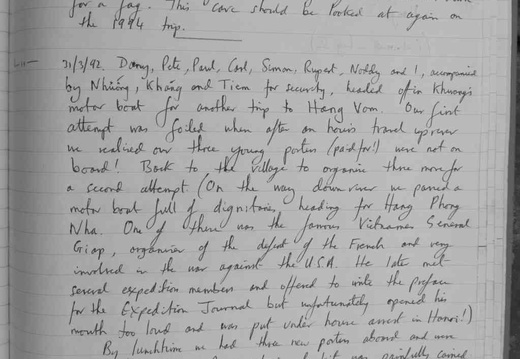 for a fag. This cave should be looked at again on
the 1994 trip.
31/3/92. Danny, Pete, Paul, Carl, Simon, Rupert, Noddy and I, accompanied
by Nhương, Kháng and Tiem for security, headed off in Khương's
motor boat for another trip to Hang Vom. Our first
attempt was foiled when after an hours travel up river
we realised our three young porters (paid for!) were not on
board! Back to the village to organise three more for
a second attempt (On the way down river we passed a
motor boat full of dignitaries heading for Hang Phong
Nha. One of these was the famous Vietnamese General
Giap, organiser of the defeat of the French and very
involved in the war against the USA. He later met
several expedition members and offered to write the preface
for the Expedition Journal but unfortunately opened his
mouth too loud and was put under house arrest in Hanoi!)
By lunchtime we had three new porters aboard and were
painfully carried